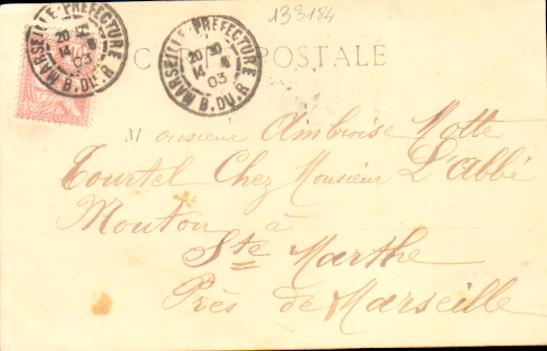 133184
MARSEILLE-PREFECTURE
20 30
14
03
B. DU. R
MARSEILLE-PREFECTURE
20 30
14
03
B. DU. R
C POSTALE
Monsieur Ambroise Motte
Tourtel Chez Monsieur L'abbé
Mouton à
Ste Marthe
Près de Marseille